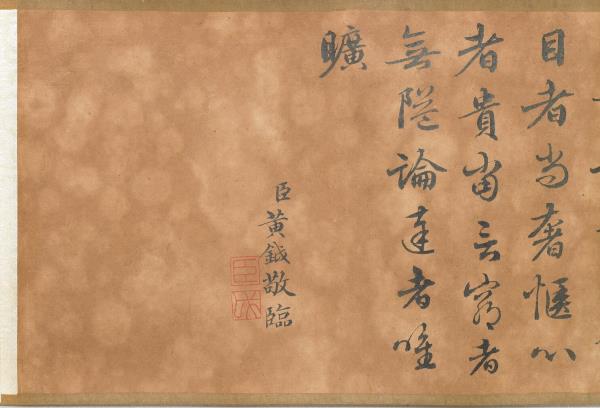 目者尚奢愜心
者貴當言窮者
無隘論達者唯
曠
臣黃鉞敬臨
臣